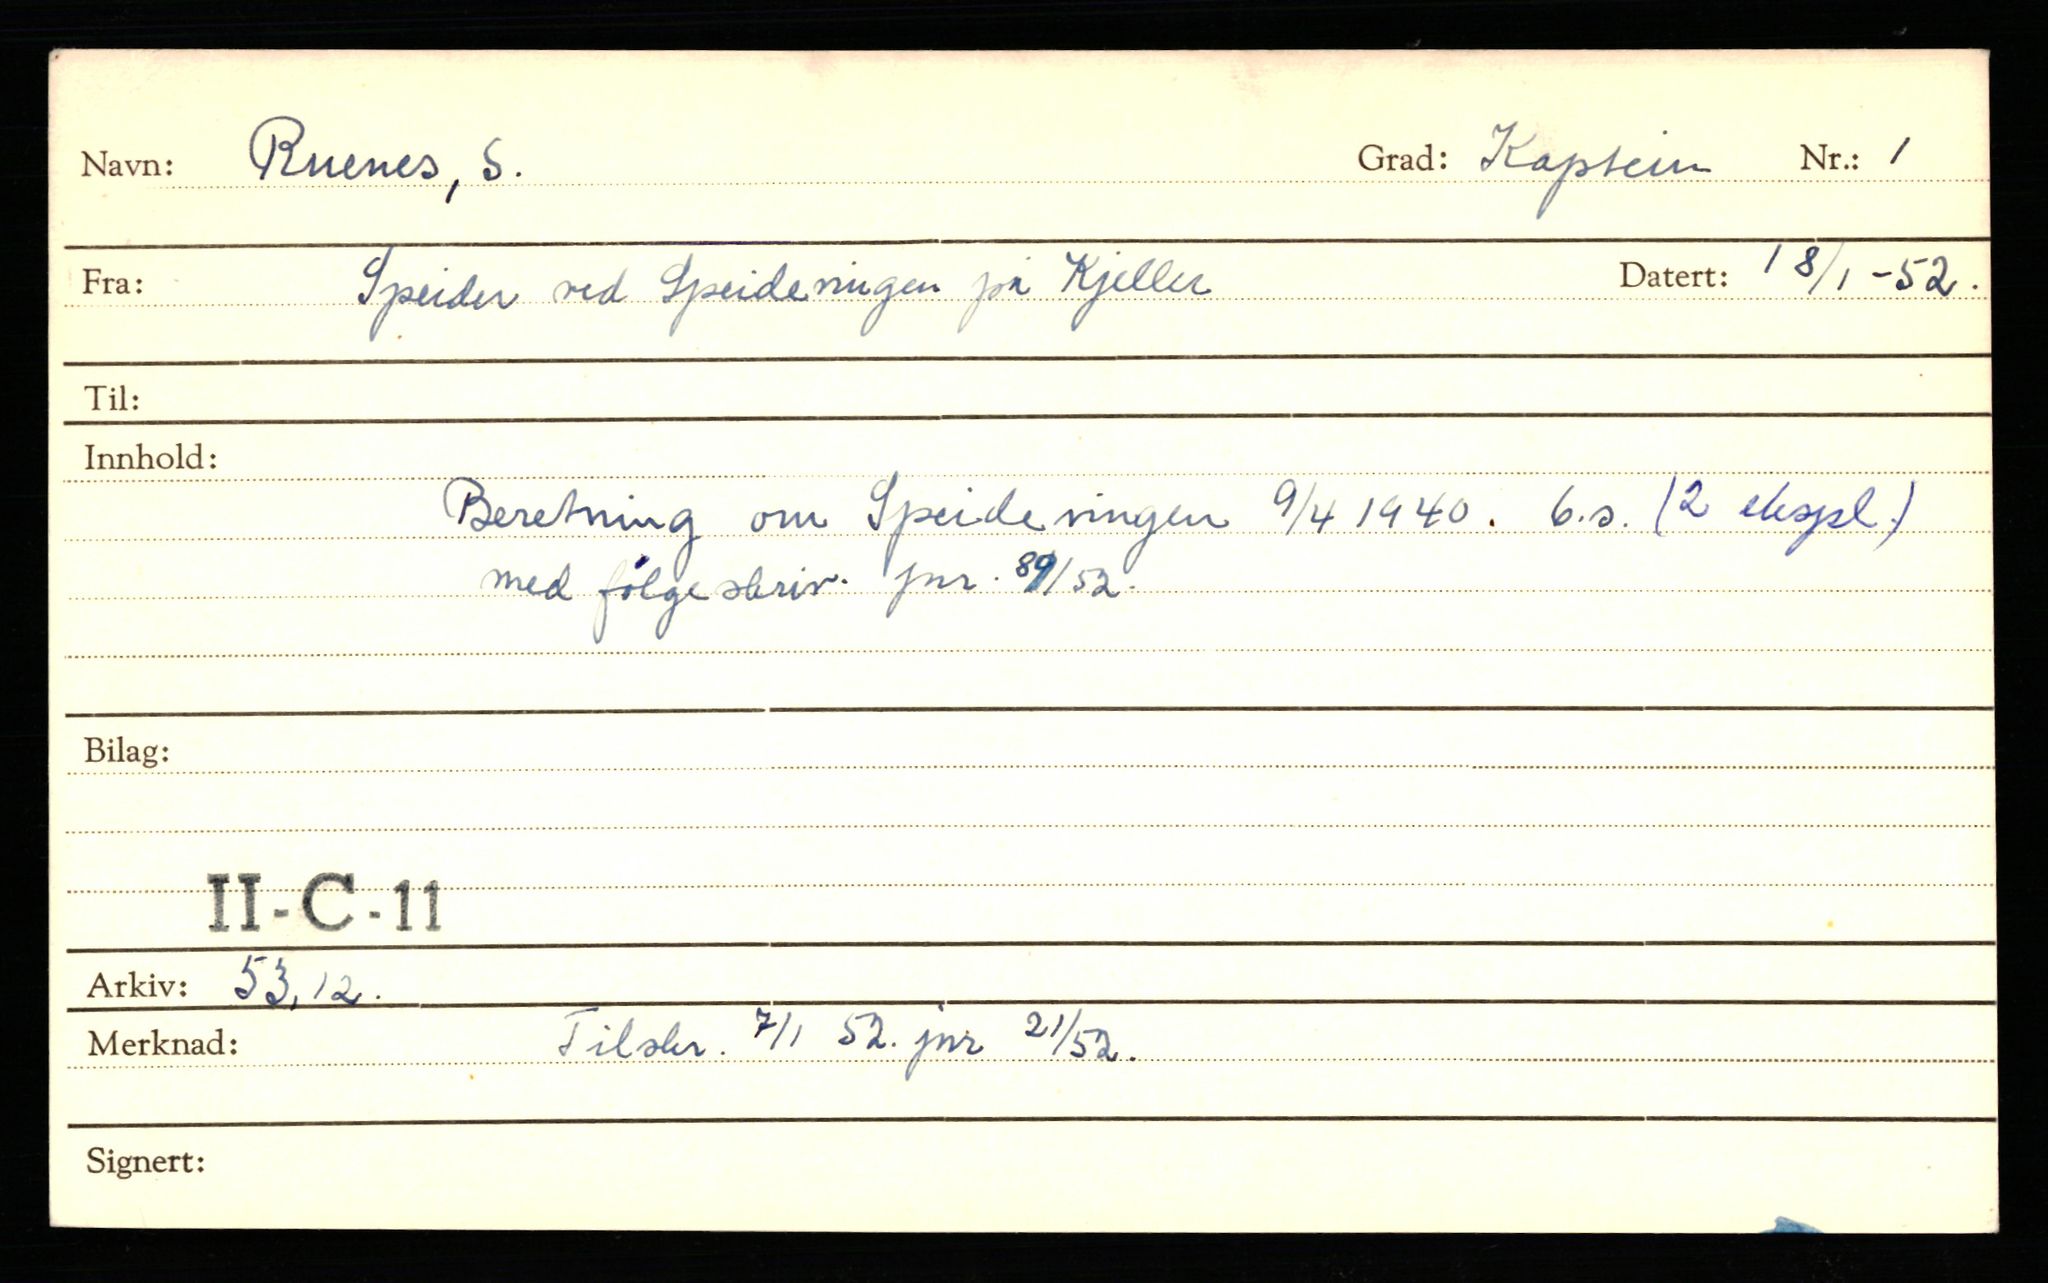 Navn: Ruenes, S. Grad: Kaptein Nr.: 1
Fra: Speider ved Speidevingen på Kjeller Datert: 18/1-52.
Til:
Innhold:
Beretning om Speidevingen 9/4 1940. 6.s. (2 ekspl.)
med følgeskriv. jnr. 89/52.
Bilag:
II-C-11
Arkiv: 53,12.
Merknad: Tilskr. 7/1 52. jnr 21/52.
Signert: